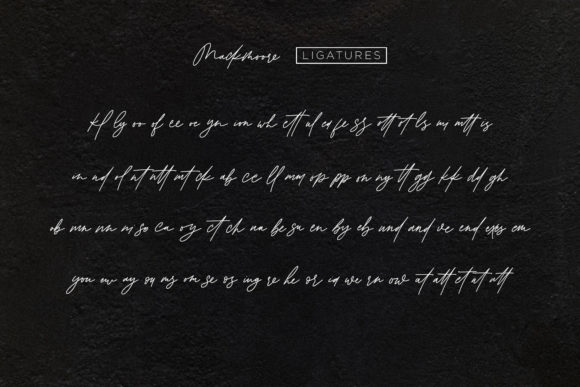 Mackmoore LIGATURES
kl ly oo of ee oe yn ion wh ett ul ea fe ss ott ot ls my mtt is
in nd ol nt ntt mt ck ab cc ll mm op pp on ny tt gg kk dd gh
ob mn nn m so ca oy ct ch aa be su en by eb und and ve end em
you ew ay ou ms om se os ing re he or ia we rn ow at att et